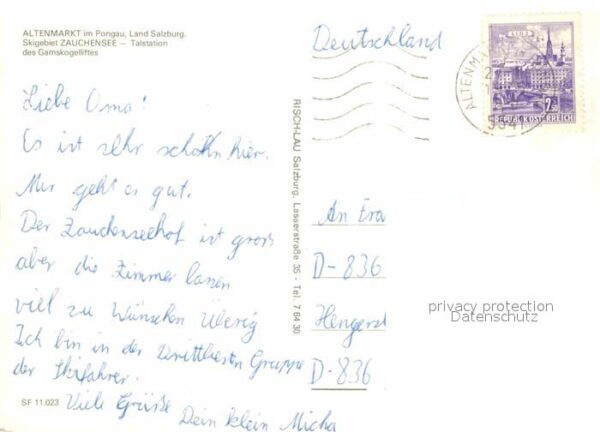 ALTENMARKT im Pongau, Land Salzburg.
Skigebiet ZAUCHENSEE – Talstation
des Gamskogelliftes
Liebe Oma!
Es ist sehr schöhn hier.
Mir geht es gut.
Der Zauchenseehof ist groß
aber die Zimmer lassen
viel zu Wünschen überig
Ich bin in der Drittbesten Gruppe
der Skifahrer.
Viele Grüße
Dein klein Micha
SF 11.023
RISCHLAU Salzburg, Lasserstraße 35 - Tel. 7 64 30
Deutschland
ALTENM
5541
LINZ
2S
REPUBLIK ÖSTERREICH
An Fra
D-836
Hengersb
D-836
privacy protection
Datenschutz